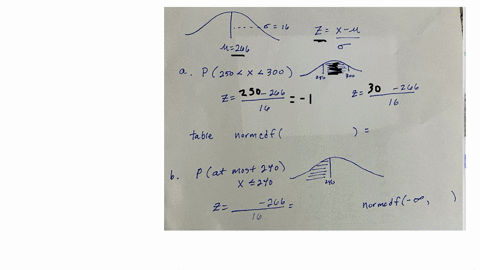 σ = 16
μ = 266
Z = x - μ / σ
a. P(250 < x < 300)
250 300
Z = 250 - 266 / 16 = -1
Z = 30 - 266 / 16
table normcdf( ) =
b. P(at most 240)
x ≤ 240
240
Z = - 266 / 16 =
normcdf(-∞, )